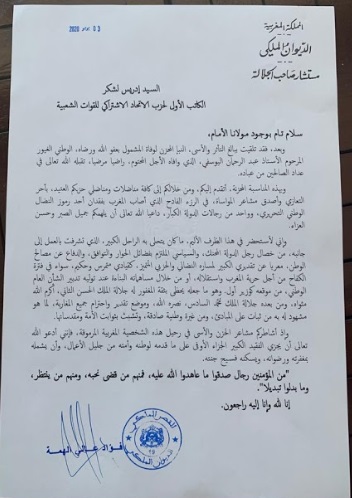 المملكة المغربية
الديوان الملكي
مستشار صاحب الجلالة
03 2020
السيد إدريس لشكر
الكاتب الأول لحزب الاتحاد الاشتراكي للقوات الشعبية
سلام تام بوجود مولانا الأمام،
وبعد، فقد تلقيت ببالغ التأثر والأسى، النبأ المحزن لوفاة المشمول بعفو الله ورضاه، الوطني الغيور
المرحوم الأستاذ عبد الرحمان اليوسفي، الذي وافاه الأجل المحتوم، راضيا مرضيا، تقبله الله تعالى في
عداد الصالحين من عباده.
وبهذه المناسبة المحزنة، أتقدم إليكم، ومن خلالكم إلى كافة مناضلات ومناضلي حزبكم العتيد، بأحر
التعازي وأصدق مشاعر المواساة، في الرزء الفادح الذي أصاب المغرب بفقدان أحد رموز النضال
الوطني التحريري، وواحد من رجالات الدولة الكبار، داعيا الله تعالى أن يلهمكم جميل الصبر وحسن
العزاء.
وإني لأستحضر في هذا الظرف الأليم، ما كان يتحلى به الراحل الكبير، الذي تشرفت بالعمل إلى
جانبه، من خصال رجل الدولة المحنك، والسياسي الملتزم بفضائل الحوار والتوافق، والدفاع عن مصالح
الوطن، معربا عن تقديري الكبير لمساره النضالي والحزبي المتميز، كقيادي متمرس وحكيم، سواء في فترة
الكفاح من أجل حرية المغرب واستقلاله، أو من خلال مساهماته البناءة عند توليه تدبير الشأن العام
الوطني، من موقعه كوزير أول. وهو ما جعله يحظى بثقة المغفور له جلالة الملك الحسن الثاني، أكرم الله
مثواه، ومن بعده جلالة الملك محمد السادس، نصره الله، وموضع تقدير واحترام جميع المغاربة، لما هو
مشهود له به من ثبات على المبادئ، ومن غيرة وطنية صادقة، وتشبث بثوابت الأمة ومقدساتها.
وإذ أشاطركم مشاعر الحزن والأسى في رحيل هذه الشخصية المغربية المرموقة، فإنني أدعو الله
تعالى أن يجزي الفقيد الكبير الجزاء الأوفى على ما قدمه لوطنه وأمته من جليل الأعمال، وأن يشمله
بمغفرته ورضوانه، ويسكنه فسيح جنته.
"من المؤمنين رجال صدقوا ما عاهدوا الله عليه، فمنهم من قضى نحبه، ومنهم من ينتظر،
وما بدلوا تبديلا".
إنا لله وإنا إليه راجعون.
فؤاد عالي الهمة